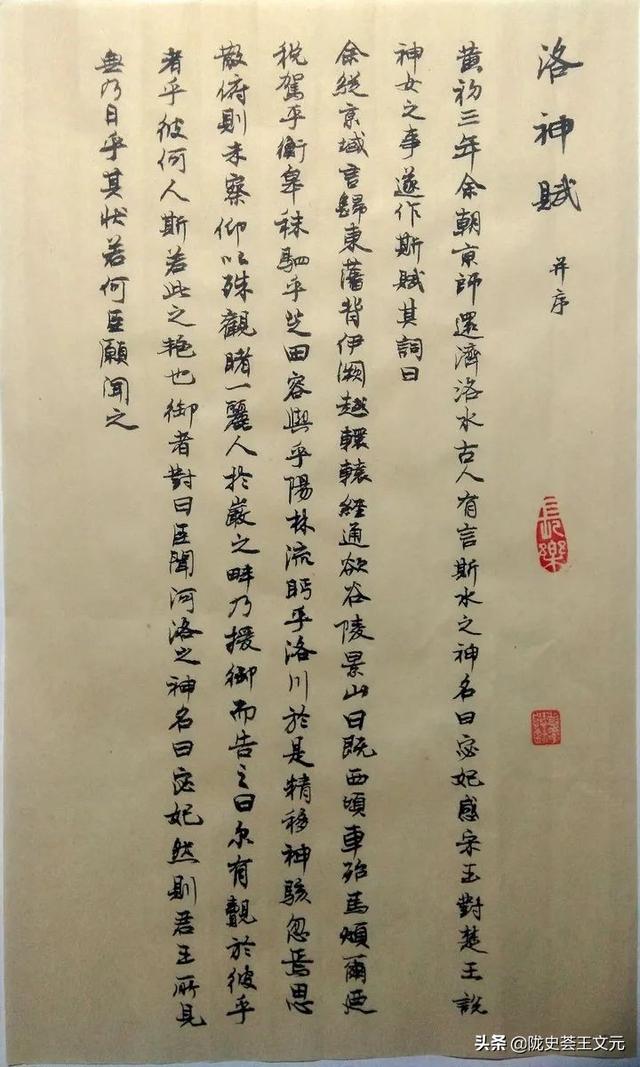 洛神賦 并序
黃初三年余朝京師還濟洛水古人有言斯水之神名曰宓妃感宋玉對楚王說
神女之事遂作斯賦其詞曰
余從京域言歸東藩背伊瀨越轘轅經通欲谷陵景山日既西頃車殆馬煩爾迺
稅駕乎衡皋秣駟乎芝田容與乎陽林流眄乎洛川於是精移神駭忽焉思
散俯則未察仰以殊觀睹一麗人於巖之畔乃援御而告之曰尔有觀於彼乎
者乎彼何人斯若此之艳也御者對曰臣聞河洛之神名曰宓妃然則君王所見
無乃日乎其狀若何臣願聞之
長樂
头条 @陇史荟王文元